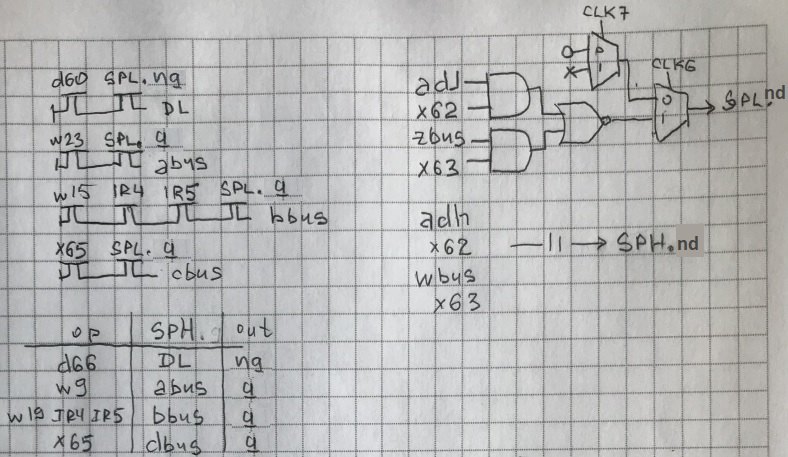 d60 SPL.nq
DL
w23 SPL.q
abus
w15 IR4 IR5 SPL.q
bbus
x65 SPL.q
cbus
op SPH. out
d66 DL nq
w9 abus q
w19 IR4 IR5 bbus q
x65 dbus q
CLK7
0
1
x
CLK6
0
1
SPL.nd
adl
x62
zbus
x63
adh
x62
wbus
x63
SPH.nd